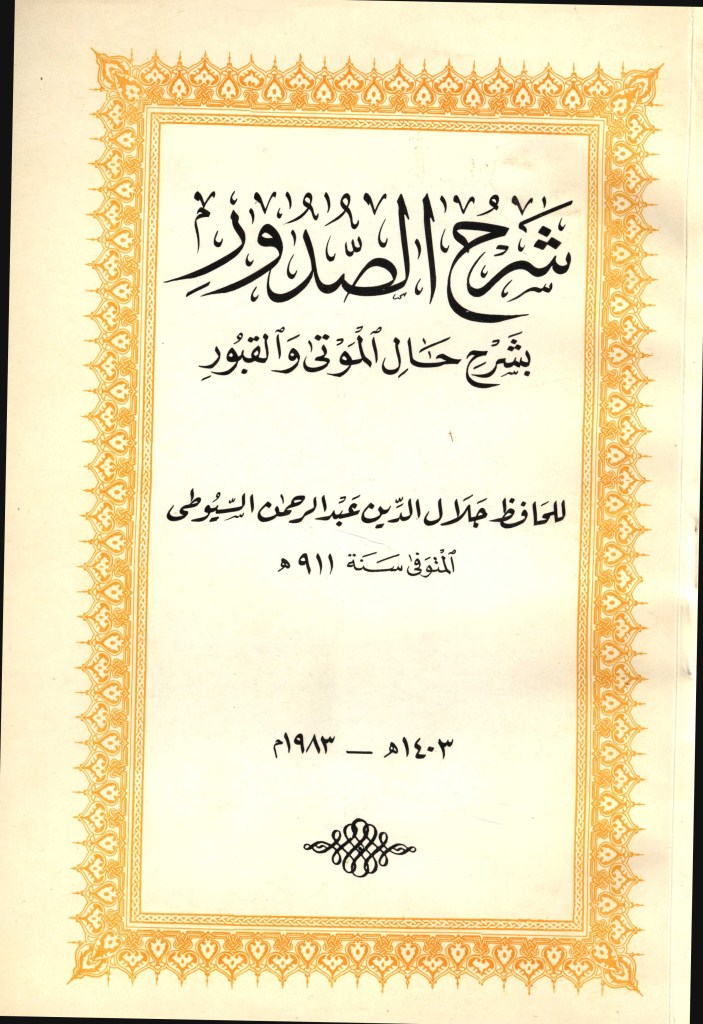 شَرْحُ الصُّدُورِ
بشَرْحِ حَالِ ٱلْمَوْتىٰ وَٱلقبُورِ
للحَافظ جَلَال الدِّين عَبْد الرحمٰن السّيُوطى
ٱلمْتوَفىٰ سَنَة ٩١١ ﻫ
١٤٠٣ﻫ — ١٩٨٣م